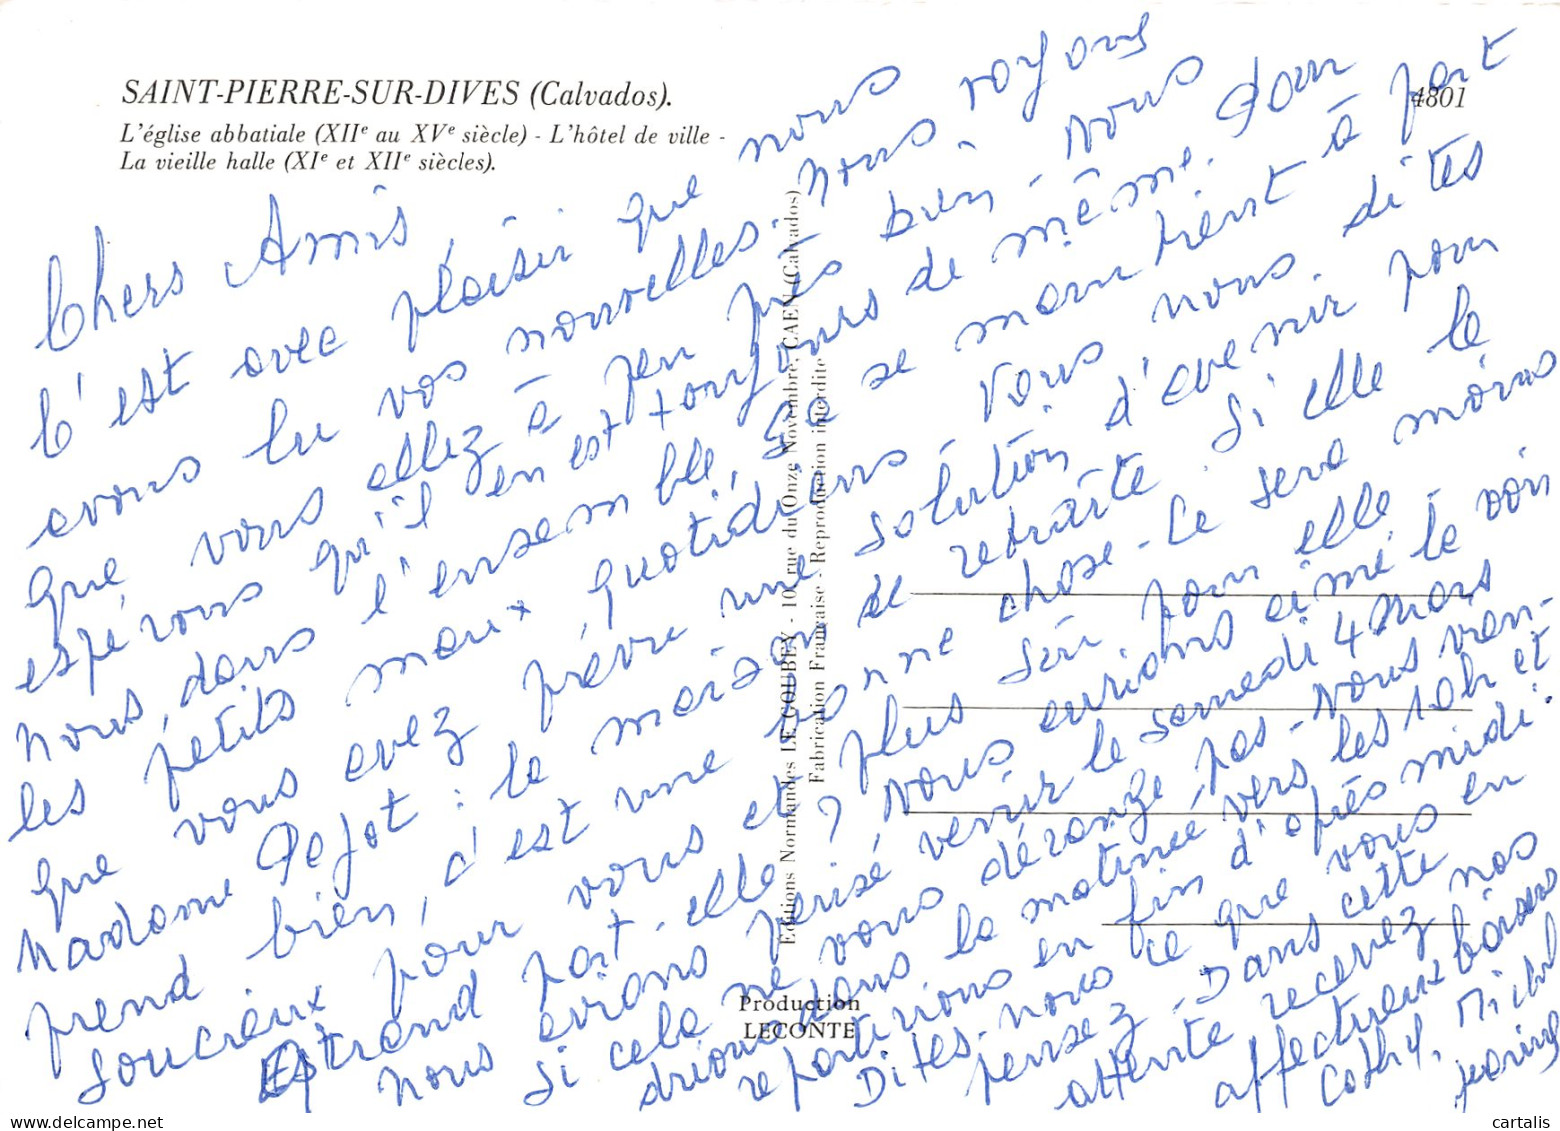 SAINT-PIERRE-SUR-DIVES (Calvados).
4801
L'église abbatiale (XIIe au XVe siècle) - L'hôtel de ville -
La vieille halle (XIe et XIIe siècles).
Chers Amis
C'est avec plaisir que nous
avons lu vos nouvelles. Nous voyons
que vous allez à peu près bien - nous
espérons qu'il en est toujours de même. Pour
nous, dans l'ensemble, ça se maintient à part
les petits maux quotidiens - Vous nous dites
que vous avez prévu une solution d'avenir pour
Madame Pejot : la maison de retraite. Si elle le
prend bien, c'est une bonne chose - Ce sera moins
soucieux pour vous et plus sûr pour elle -
Et prend part-elle ? Nous aurions aimé le voir
Nous avions pensé venir le samedi 4 Mars
si cela ne vous dérange pas - Nous vien-
drions dans la matinée vers les 10h et
repartirions en fin d'après midi.
Dites-nous ce que vous en
pensez - Dans cette
attente recevez nos
affectueux baisers
Cathy, Michel
Editions Normandes LE GOUBEY - 10, rue du Onze Novembre, CAEN (Calvados)
Fabrication Française - Reproduction interdite
Production
LECONTE
www.delcampe.net
cartalis